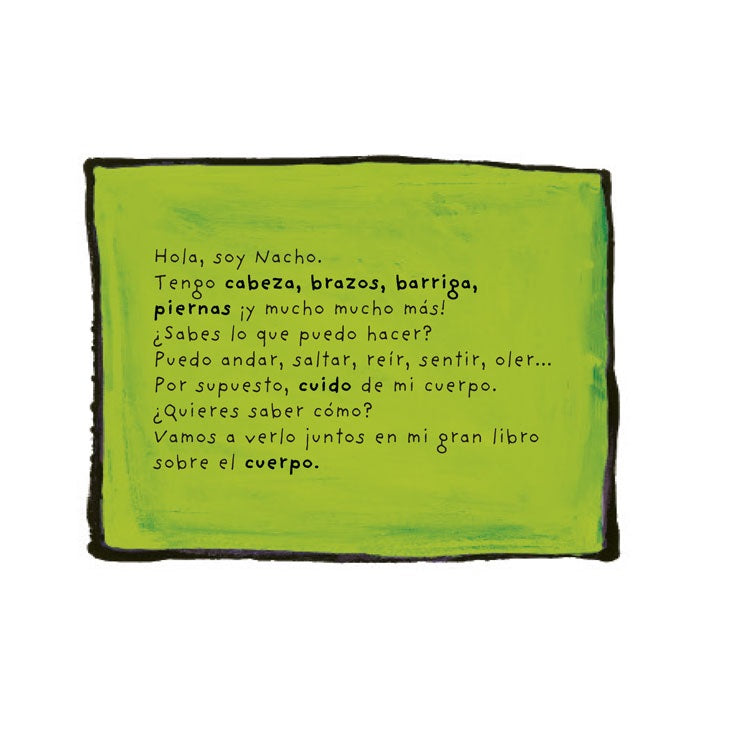 Hola, soy Nacho.
Tengo cabeza, brazos, barriga,
piernas ¡y mucho mucho más!
¿Sabes lo que puedo hacer?
Puedo andar, saltar, reír, sentir, oler...
Por supuesto, cuido de mi cuerpo.
¿Quieres saber cómo?
Vamos a verlo juntos en mi gran libro
sobre el cuerpo.